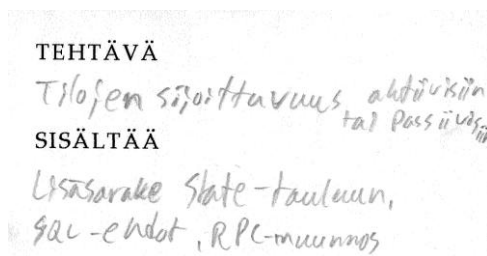 TEHTÄVÄ
Tilojen sijoittuvuus aktiivisiin
tai passiivisiin
SISÄLTÄÄ
Lisäsarake State-tauluun,
SQL-ehdot, RPC-muunnos